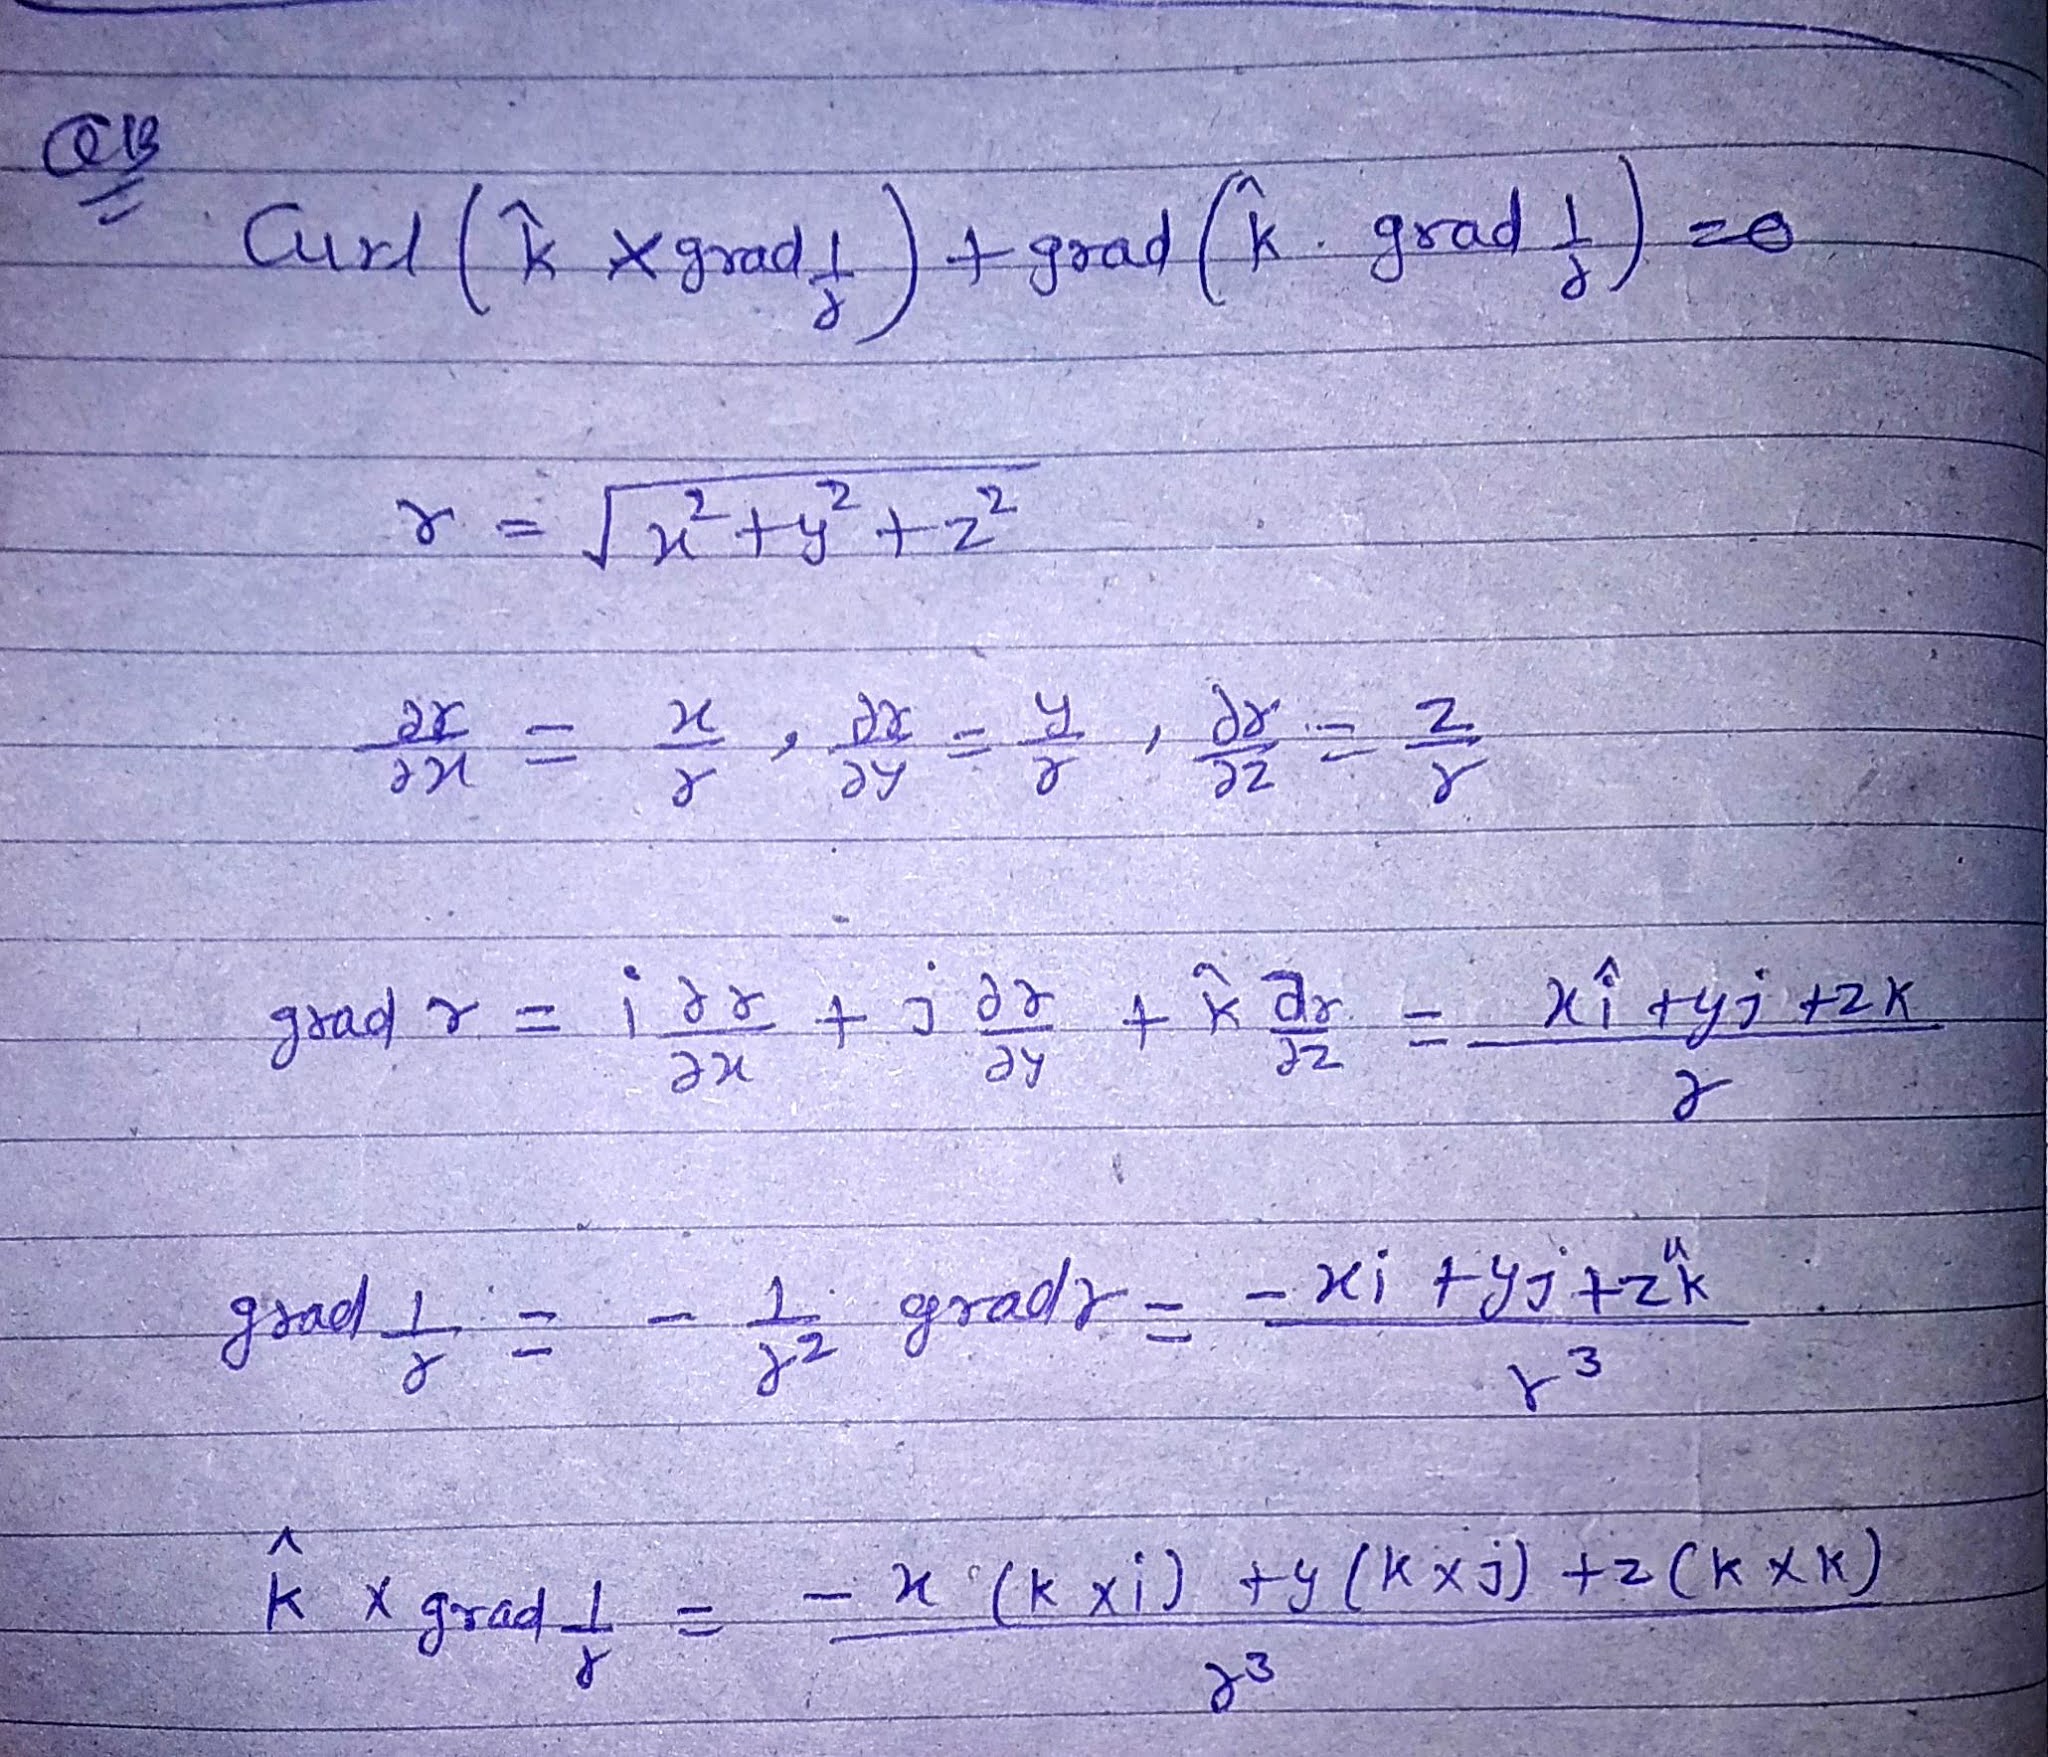 Q13
Curl (k̂ × grad 1/r) + grad (k̂ . grad 1/r) = 0
r = √(x² + y² + z²)
∂r/∂x = x/r , ∂r/∂y = y/r , ∂r/∂z = z/r
grad r = i ∂r/∂x + j ∂r/∂y + k̂ ∂r/∂z = (xî + yj + zk)/r
grad 1/r = - 1/r² grad r = - (xi + yj + zk̂)/r³
k̂ × grad 1/r = - (x (k × i) + y (k × j) + z (k × k))/r³